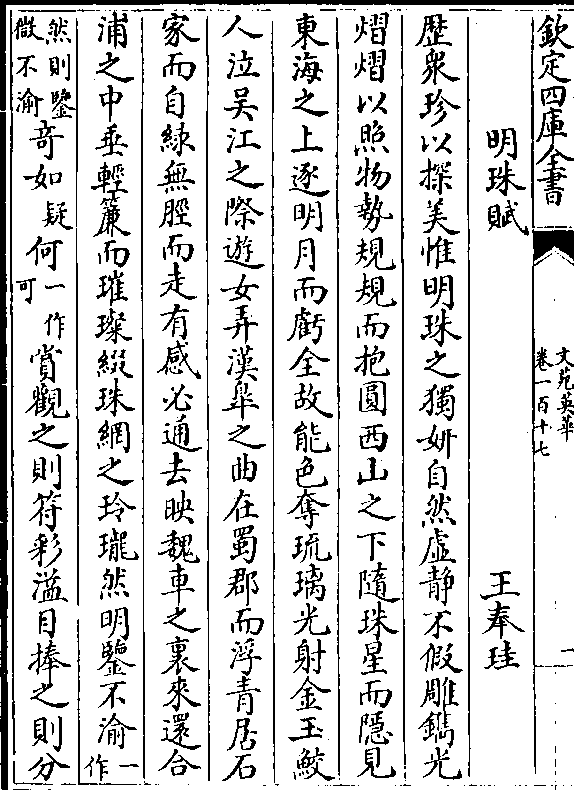 欽定四庫全書
文苑英華
卷一百十七
一
明珠賦　王奉珪
歴衆珍以探美惟明珠之獨妍自然虚静不假雕鐫光
熠熠以照物勢規規而抱圓西山之下隨珠星而隠見
東海之上逐明月而虧全故能色奪琉璃光射金玉鮫
人泣吳江之際遊女弄漢臯之曲在蜀郡而浮青居石
家而自緑無脛而走有感必通去映魏車之裏來還合
浦之中垂輕簾而璀璨綴珠網之玲瓏然明鑒不渝一作
然則鑒微不渝奇如疑何一作可賞觀之則符彩溢目捧之則分